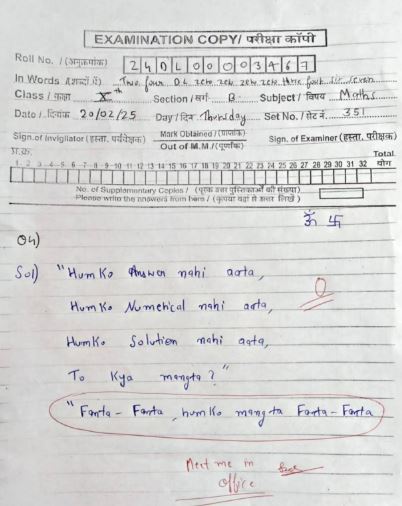 EXAMINATION COPY/ परीक्षा कॉपी
Roll No. / (अनुक्रमांक) 24DL00003467
In Words /(शब्दों में) Two four D L zero zero zero zero three four six seven
Class / कक्षा Xth Section / वर्ग B Subject / विषय Maths
Date / दिनांक 20/02/25 Day / दिन Thursday Set No. / सेट नं. 351
Sign.of Invigilator (हस्ता. पर्यवेक्षक) Mark Obtained / (प्राप्तांक) Sign. of Examiner (हस्ता. परीक्षक)
Out of M.M / (पूर्णांक)
Total
1 2 3 4 5 6 7 8 9 10 11 12 13 14 15 16 17 18 19 20 21 22 23 24 25 26 27 28 29 30 31 32 योग
No. of Supplementary Copies / (पूरक उत्तर पुस्तिकाओं की संख्या)
Please write the answers from here / (कृपया यहां से उत्तर लिखें)
ॐ 卐
Q4)
Sol) "Humko Answer nahi aata,
0
Humko Numerical nahi aata,
Humko Solution nahi aata,
To Kya mangta?"
"Fanta - Fanta, humko mangta Fanta-Fanta
Meet me in
office